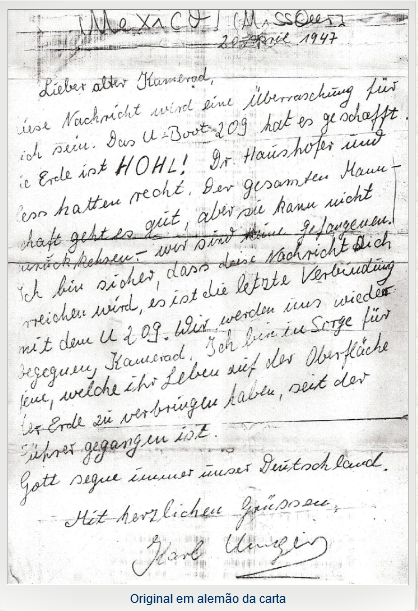 [Mexico] (Missouri)
20. April 1947
Lieber alter Kamerad,
iese Nachricht wird eine Überraschung für
ich sein. Das U-Boot-209 hat es geschafft.
ie Erde ist HOHL! Dr. Haushofer und
ess hatten recht. Der gesamten Mann-
chaft geht es gut, aber sie kann nicht
zurückkehren - wir sind keine Gefangenen.
Ich bin sicher, dass diese Nachricht Dich
rreichen wird, es ist die letzte Verbindung
mit dem U 209. Wir werden uns wieder
begegnen, Kamerad. Ich bin in Sorge für
jene, welche ihr Leben auf der Oberfläche
der Erde zu verbringen haben, seit der
Führer gegangen ist.
Gott segne immer unser Deutschland.
Mit herzlichen Grüssen,
Karl Unger
Original em alemão da carta